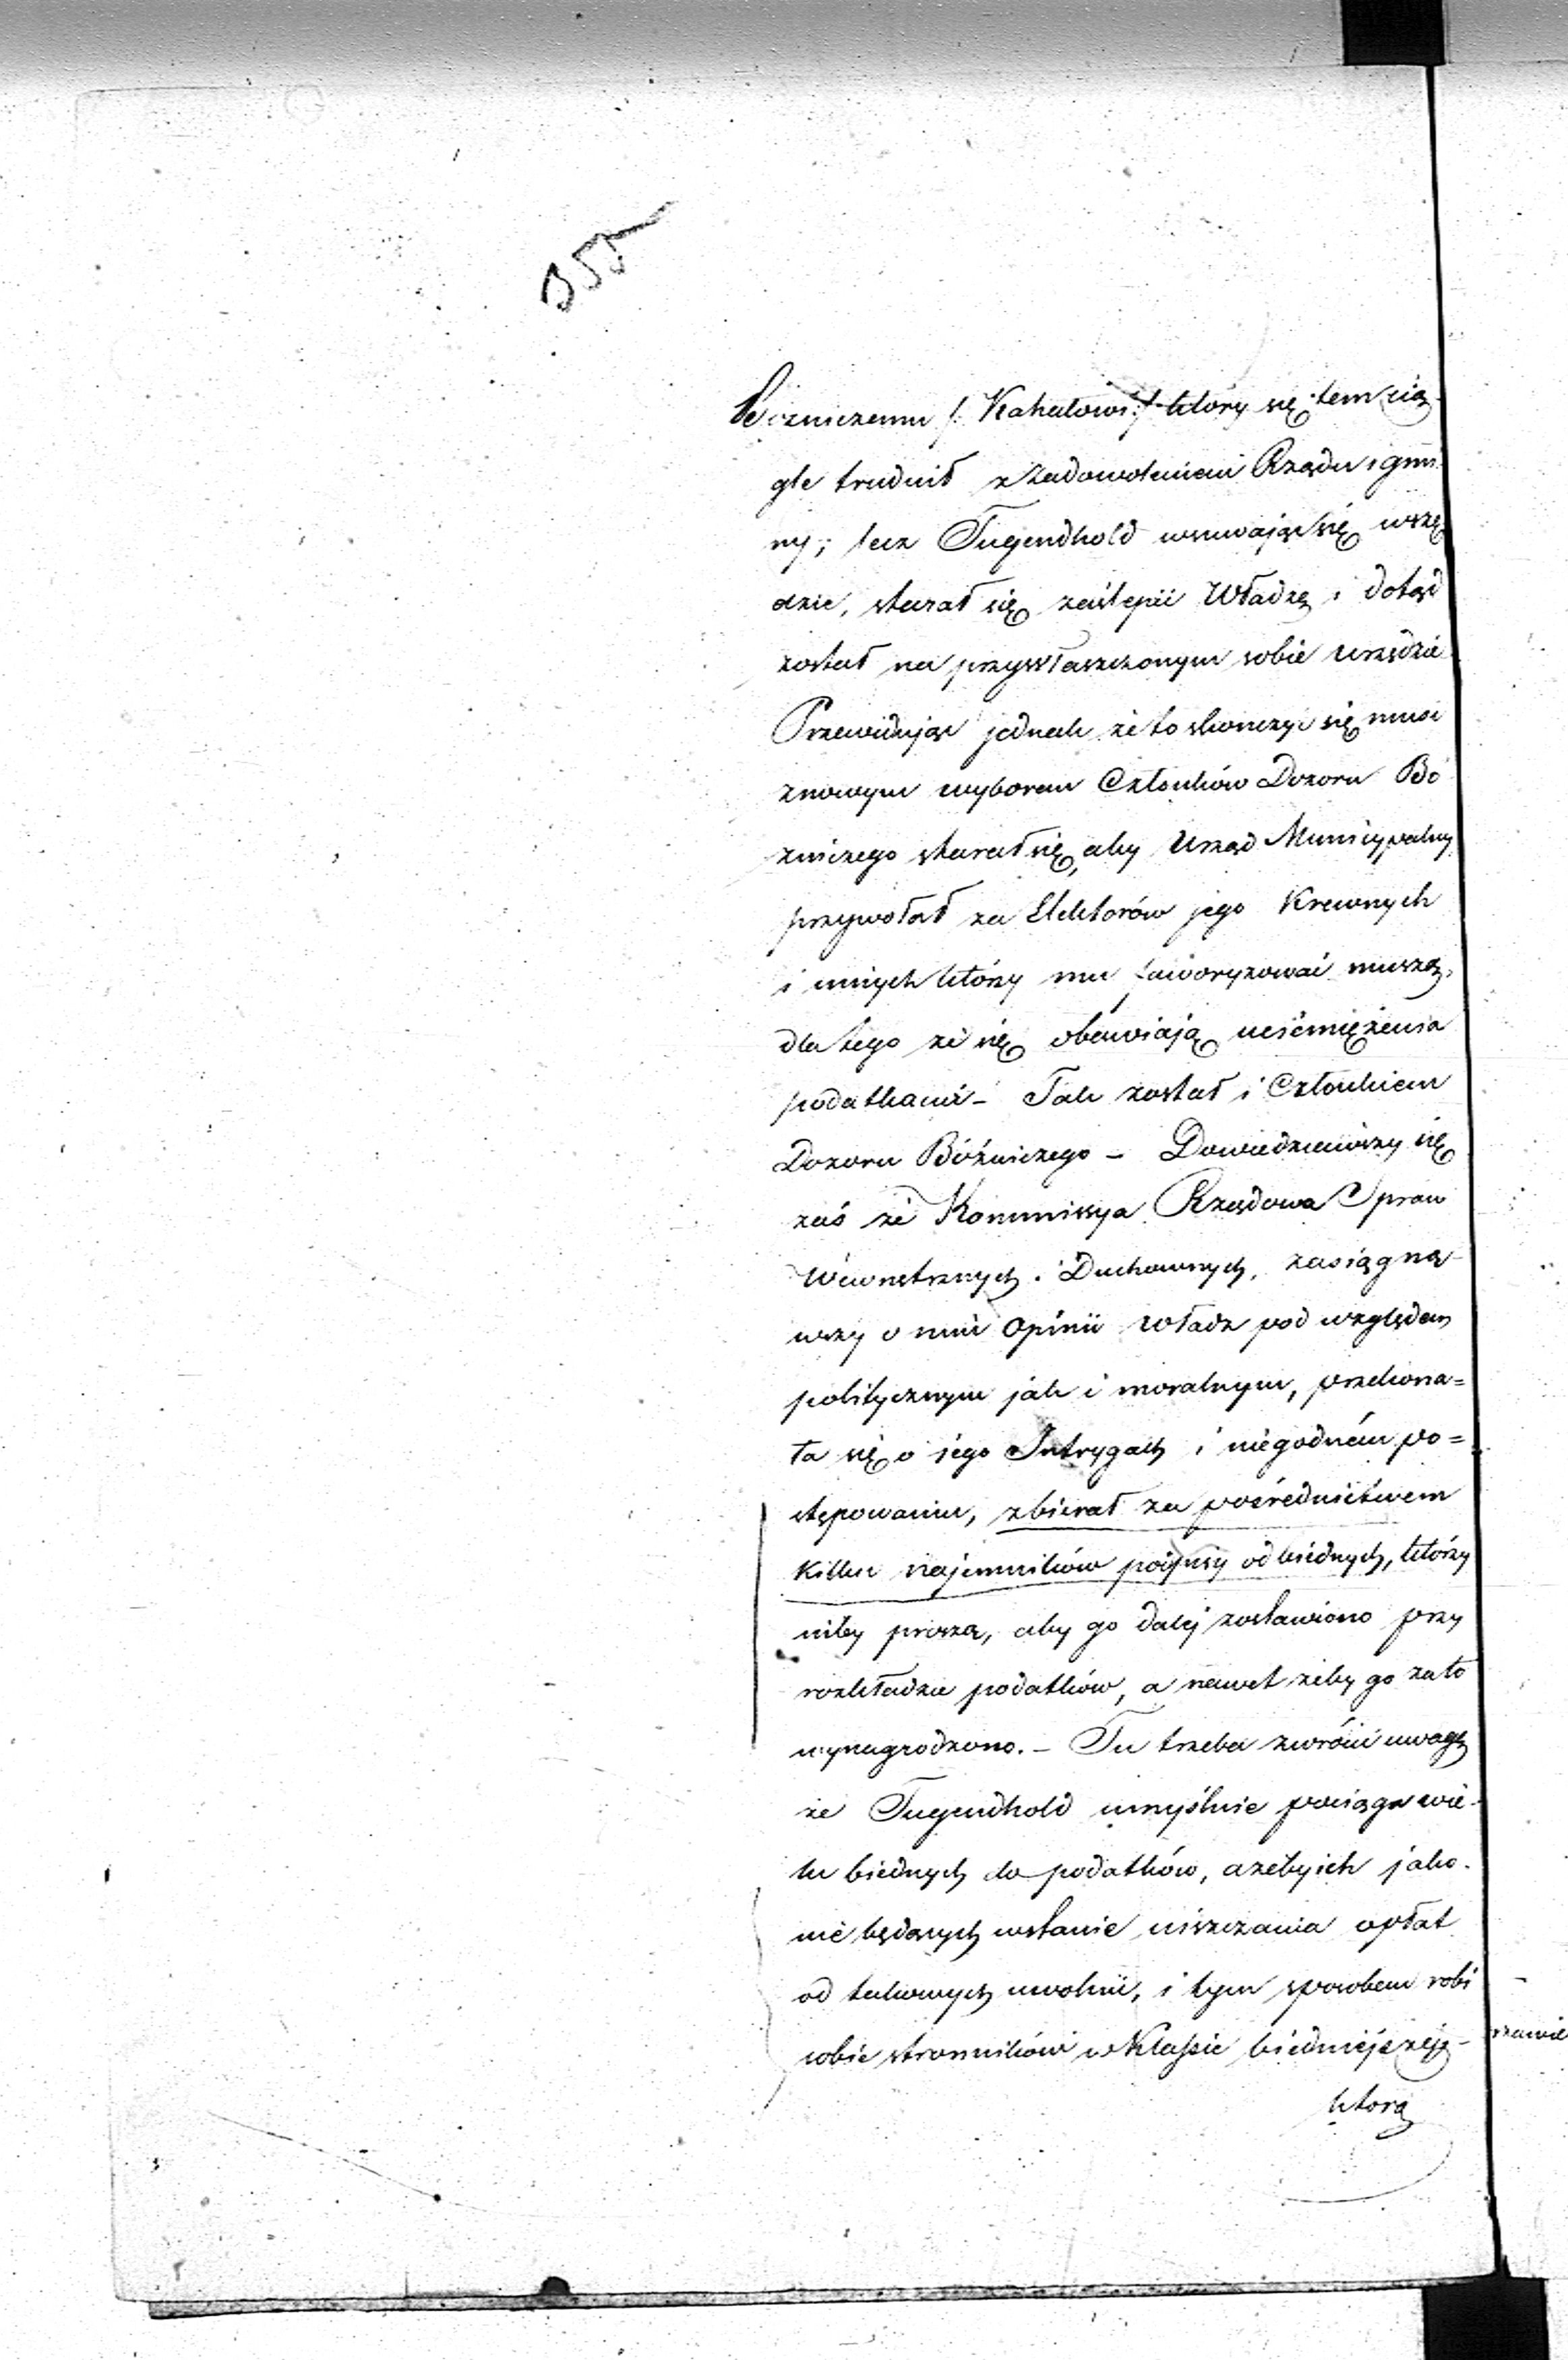 355
żniczemu /: Kahałowi :/ który się tem cią
gle trudnił z zadowoleniem Rządu i gmi
ny; lecz Tugendhold wsuwając się wszę
dzie, starał się zaślepić Władzę i dotąd
został na przywłaszczonym sobie urzędzie
Przewidując jednak że to skończyć się musi
znowym wyborem Członków Dozoru Bó
żniczego starał się, aby Urząd Municypalny
przywołał za Elektorów jego Krewnych
i innych którzy mu faworyzować muszą,
dla tego że się obawiają uciemiężenia
podatkami – Tak został i Członkiem
Dozoru Bóżniczego – Dowiedziawszy się
zaś że Kommissya Rządowa Spraw
Wewnętrznych i Duchownych, zasiągną-
wszy o nim Opinii Władz pod względem
politycznym jak i moralnym, przekona=
ła się o jego Intrygach i niegodném po=
stępowaniu, zbierał za pośrednictwem
Kilku najemników podpisy od biednych, którzy
niby proszą, aby go dalej zostawiono przy
rozkładzie podatków, a nawet żeby go za to
wynagrodzono. – Tu trzeba zwrócić uwagę
że Tugendhold umyślnie pociąga wie-
lu biednych do podatków, ażeby ich jako
nie będących wstanie uiszczania opłat
od takowych uwolnić, i tym sposobem robi
sobie stronników w Klassie biedniejszej –
którą